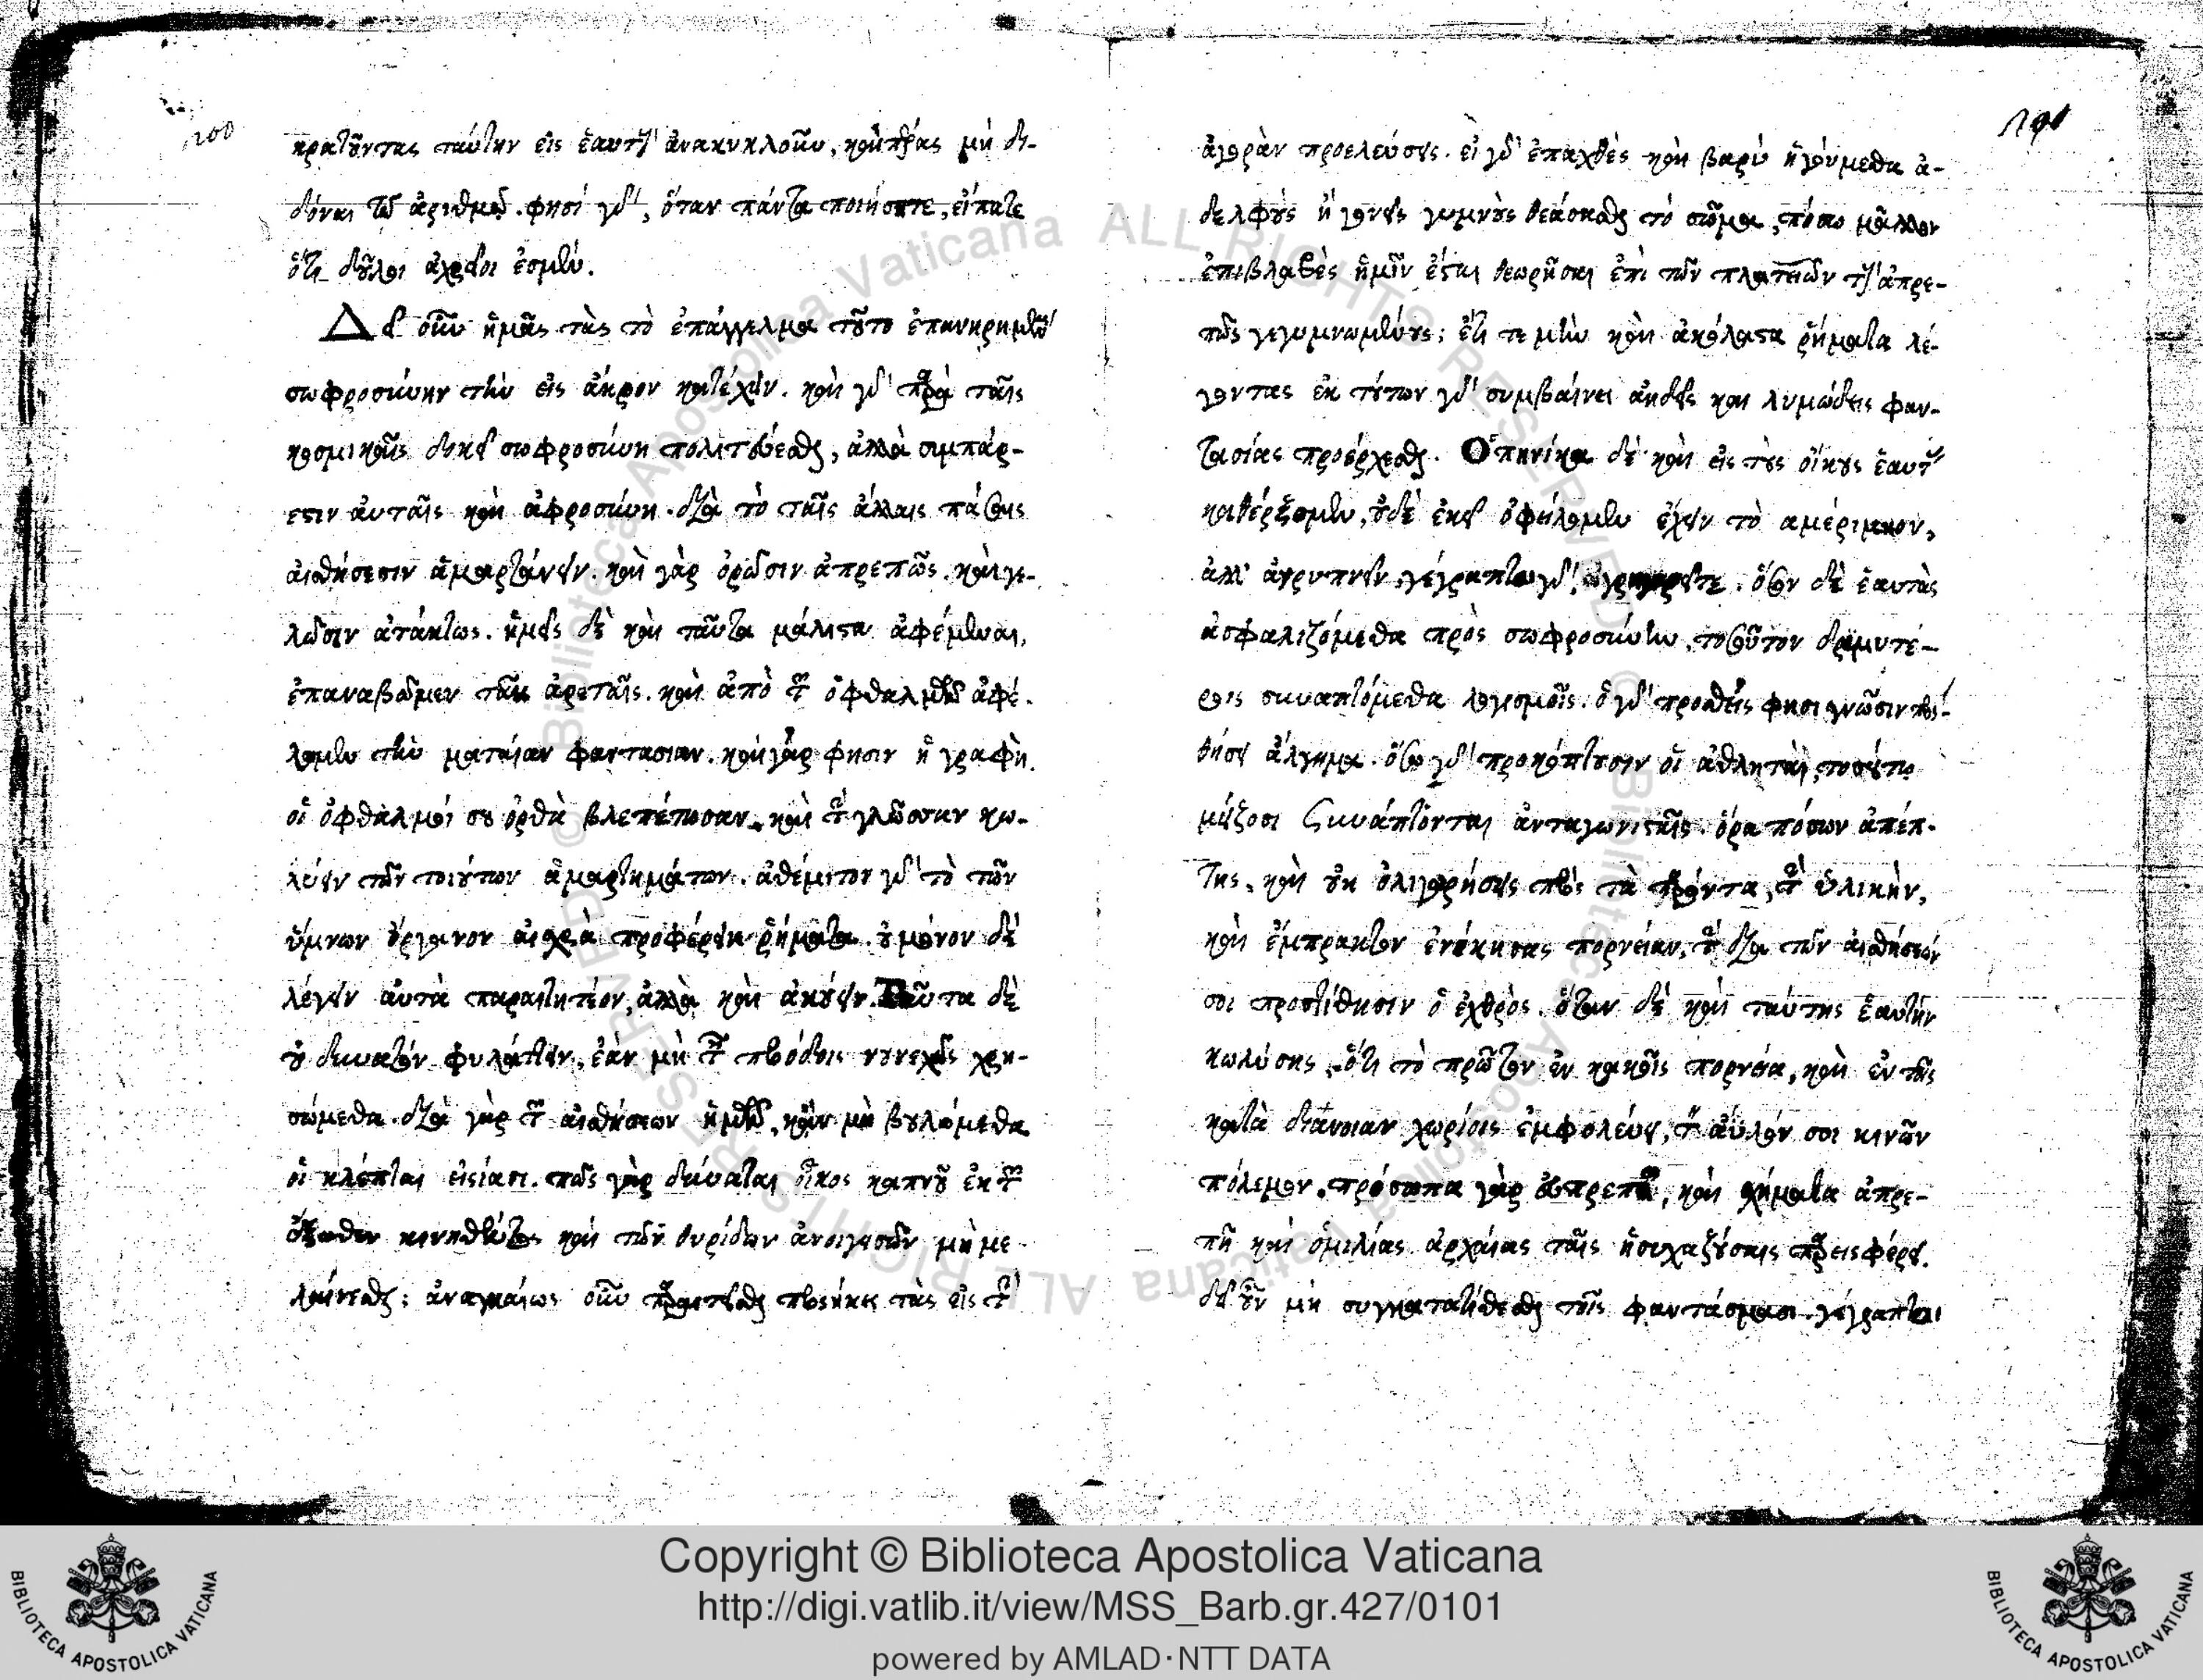 200
κρατοῦντας ταύτην εἰς ἑαυτοὺς ἀνακυκλοῦν, καὶ πέρας μὴ δι-
δόναι τῷ ἀριθμῷ. φησὶ γὰρ, ὅταν πάντα ποιήσητε, εἴπατε
ὅτι δοῦλοι ἀχρεῖοι ἐσμέν.
Δεῖ οὖν ἡμᾶς τὰς τὸ ἐπάγγελμα τοῦτο ἐπανῃρημένας
σωφροσύνην τὴν εἰς ἄκρον κατέχειν. καὶ γὰρ παρὰ ταῖς
κοσμικαῖς δοκεῖ σωφροσύνη πολιτεύεσθαι, ἀλλὰ συμπάρ-
εστιν αὐταῖς καὶ ἀφροσύνη. διὰ τὸ ταῖς ἄλλαις πάσαις
αἰσθήσεσιν ἁμαρτάνειν. καὶ γὰρ ὁρῶσιν ἀπρεπῶς. καὶ γε-
λῶσιν ἀτάκτως. ἡμεῖς δὲ καὶ ταῦτα μάλιστα ἀφέμεναι,
ἐπαναβῶμεν ταῖς ἀρεταῖς. καὶ ἀπὸ τῶν ὀφθαλμῶν ἀφέ-
λωμεν τὴν ματαίαν φαντασίαν. καὶ γάρ φησιν ἡ γραφὴ.
οἱ ὀφθαλμοί σου ὀρθὰ βλεπέτωσαν. καὶ τὴν γλῶσσαν κω-
λύειν τῶν τοιούτων ἁμαρτημάτων. ἀθέμιτον γὰρ τὸ τῶν
ὕμνων ὄργανον αἰσχρὰ προφέρειν ῥήματα. οὐ μόνον δὲ
λέγειν αὐτὰ παραιτητέον, ἀλλὰ καὶ ἀκούειν. Ταῦτα δὲ
οὐ δυνατὸν φυλάττειν, ἐὰν μὴ τῇ προόδοις συνεχῶς χρη-
σώμεθα. διὰ γὰρ τῶν αἰσθήσεων ἡμῶν, κἂν μὴ βουλώμεθα
οἱ κλέπται εἰσίασι. πῶς γὰρ δύναται οἶκος καπνοῦ ἐκ τοῦ
ἔξωθεν κινηθέντος καὶ τῶν θυρίδων ἀνοιγεισῶν μὴ με-
λαίνεσθαι; ἀναγκαίως οὖν παραιτεῖσθαι προσήκει τὰς εἰς τὴν
201
ἀγορὰν προελεύσεις. εἰ γὰρ ἐπαχθὲς καὶ βαρὺ ἡγούμεθα ἀ-
δελφοὺς ἢ γονεῖς γυμνοὺς θεάσασθαι τὸ σῶμα, πόσῳ μᾶλλον
ἐπιβλαβὲς ἡμῖν ἔσται θεωρῆσαι ἐπὶ τῶν πλατειῶν τοὺς ἀπρε-
πῶς γεγυμνωμένους; ἔτι τε μὴν καὶ ἀκόλαστα ῥήματα λέ-
γοντας ἐκ τούτων γὰρ συμβαίνει ἀηδεῖς καὶ λυμώδεις φαν-
τασίας προέρχεσθαι. Ὁπηνίκα δὲ καὶ εἰς τοὺς οἴκους ἑαυτὰς
καθέρξομεν, οὐδὲ ἐκεῖ ὀφείλομεν ἔχειν τὸ ἀμέριμνον,
ἀλλ' ἀγρυπνεῖν, γέγραπται γὰρ, γρηγορεῖτε. ὅσον δὲ ἑαυτὰς
ἀσφαλιζόμεθα πρὸς σωφροσύνην, τοσοῦτον δριμυτέ-
ροις συναπτόμεθα λογισμοῖς. ὁ γὰρ προσθεὶς φησι γνῶσιν προσ-
θήσει ἄλγημα. ὅσῳ γὰρ προκόπτουσιν οἱ ἀθληταί, τοσούτῳ
μείζοσι συνάπτονται ἀνταγωνισταῖς. ὅρα πόσων ἀπέσ-
της, καὶ οὐκ ὀλιγωρήσεις πρὸς τὰ παρόντα, τὴν ὑλικὴν,
καὶ ἔμπρακτον ἐνίκησας πορνείαν, τὴν διὰ τῶν αἰσθήσεών
σοι προστίθησιν ὁ ἐχθρὸς. ὅταν δὲ καὶ ταύτης ἑαυτὴν
κωλύσῃς, ὅτι τὸ πρῶτον ἐν κακοῖς πορνεία, καὶ ἐν τοῖς
κατὰ διάνοιαν χωρίοις ἐμφωλεύει, τὸν ἄϋλόν σοι κινῶν
πόλεμον. πρόσωπα γὰρ εὐπρεπῆ, καὶ σχήματα ἀπρε-
πῆ καὶ ὁμιλίας ἀρχαίας ταῖς ἡσυχαζούσαις παρεισφέρει.
δεῖ οὖν μὴ συγκατατίθεσθαι τοῖς φαντάσμασι. γέγραπται